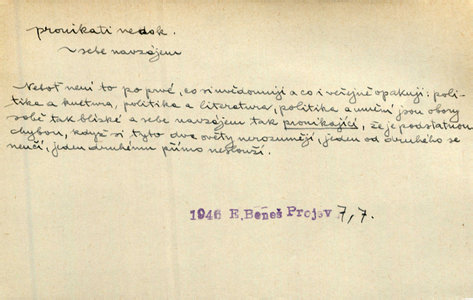 pronikati nedok.
~ sebe navzájem
Neboť není to po prvé, co si uvědomuji a co i veřejně opakuji: poli-
tika a kultura, politika a literatura, politika a umění jsou obory
sobě tak blízké a sebe navzájem tak pronikající, že je podstatnou
chybou, když si tyto dva světy nerozumějí, jeden od druhého se
neučí, jeden druhému přímo neslouží.
1946 E. Beneš Projev 7,7.